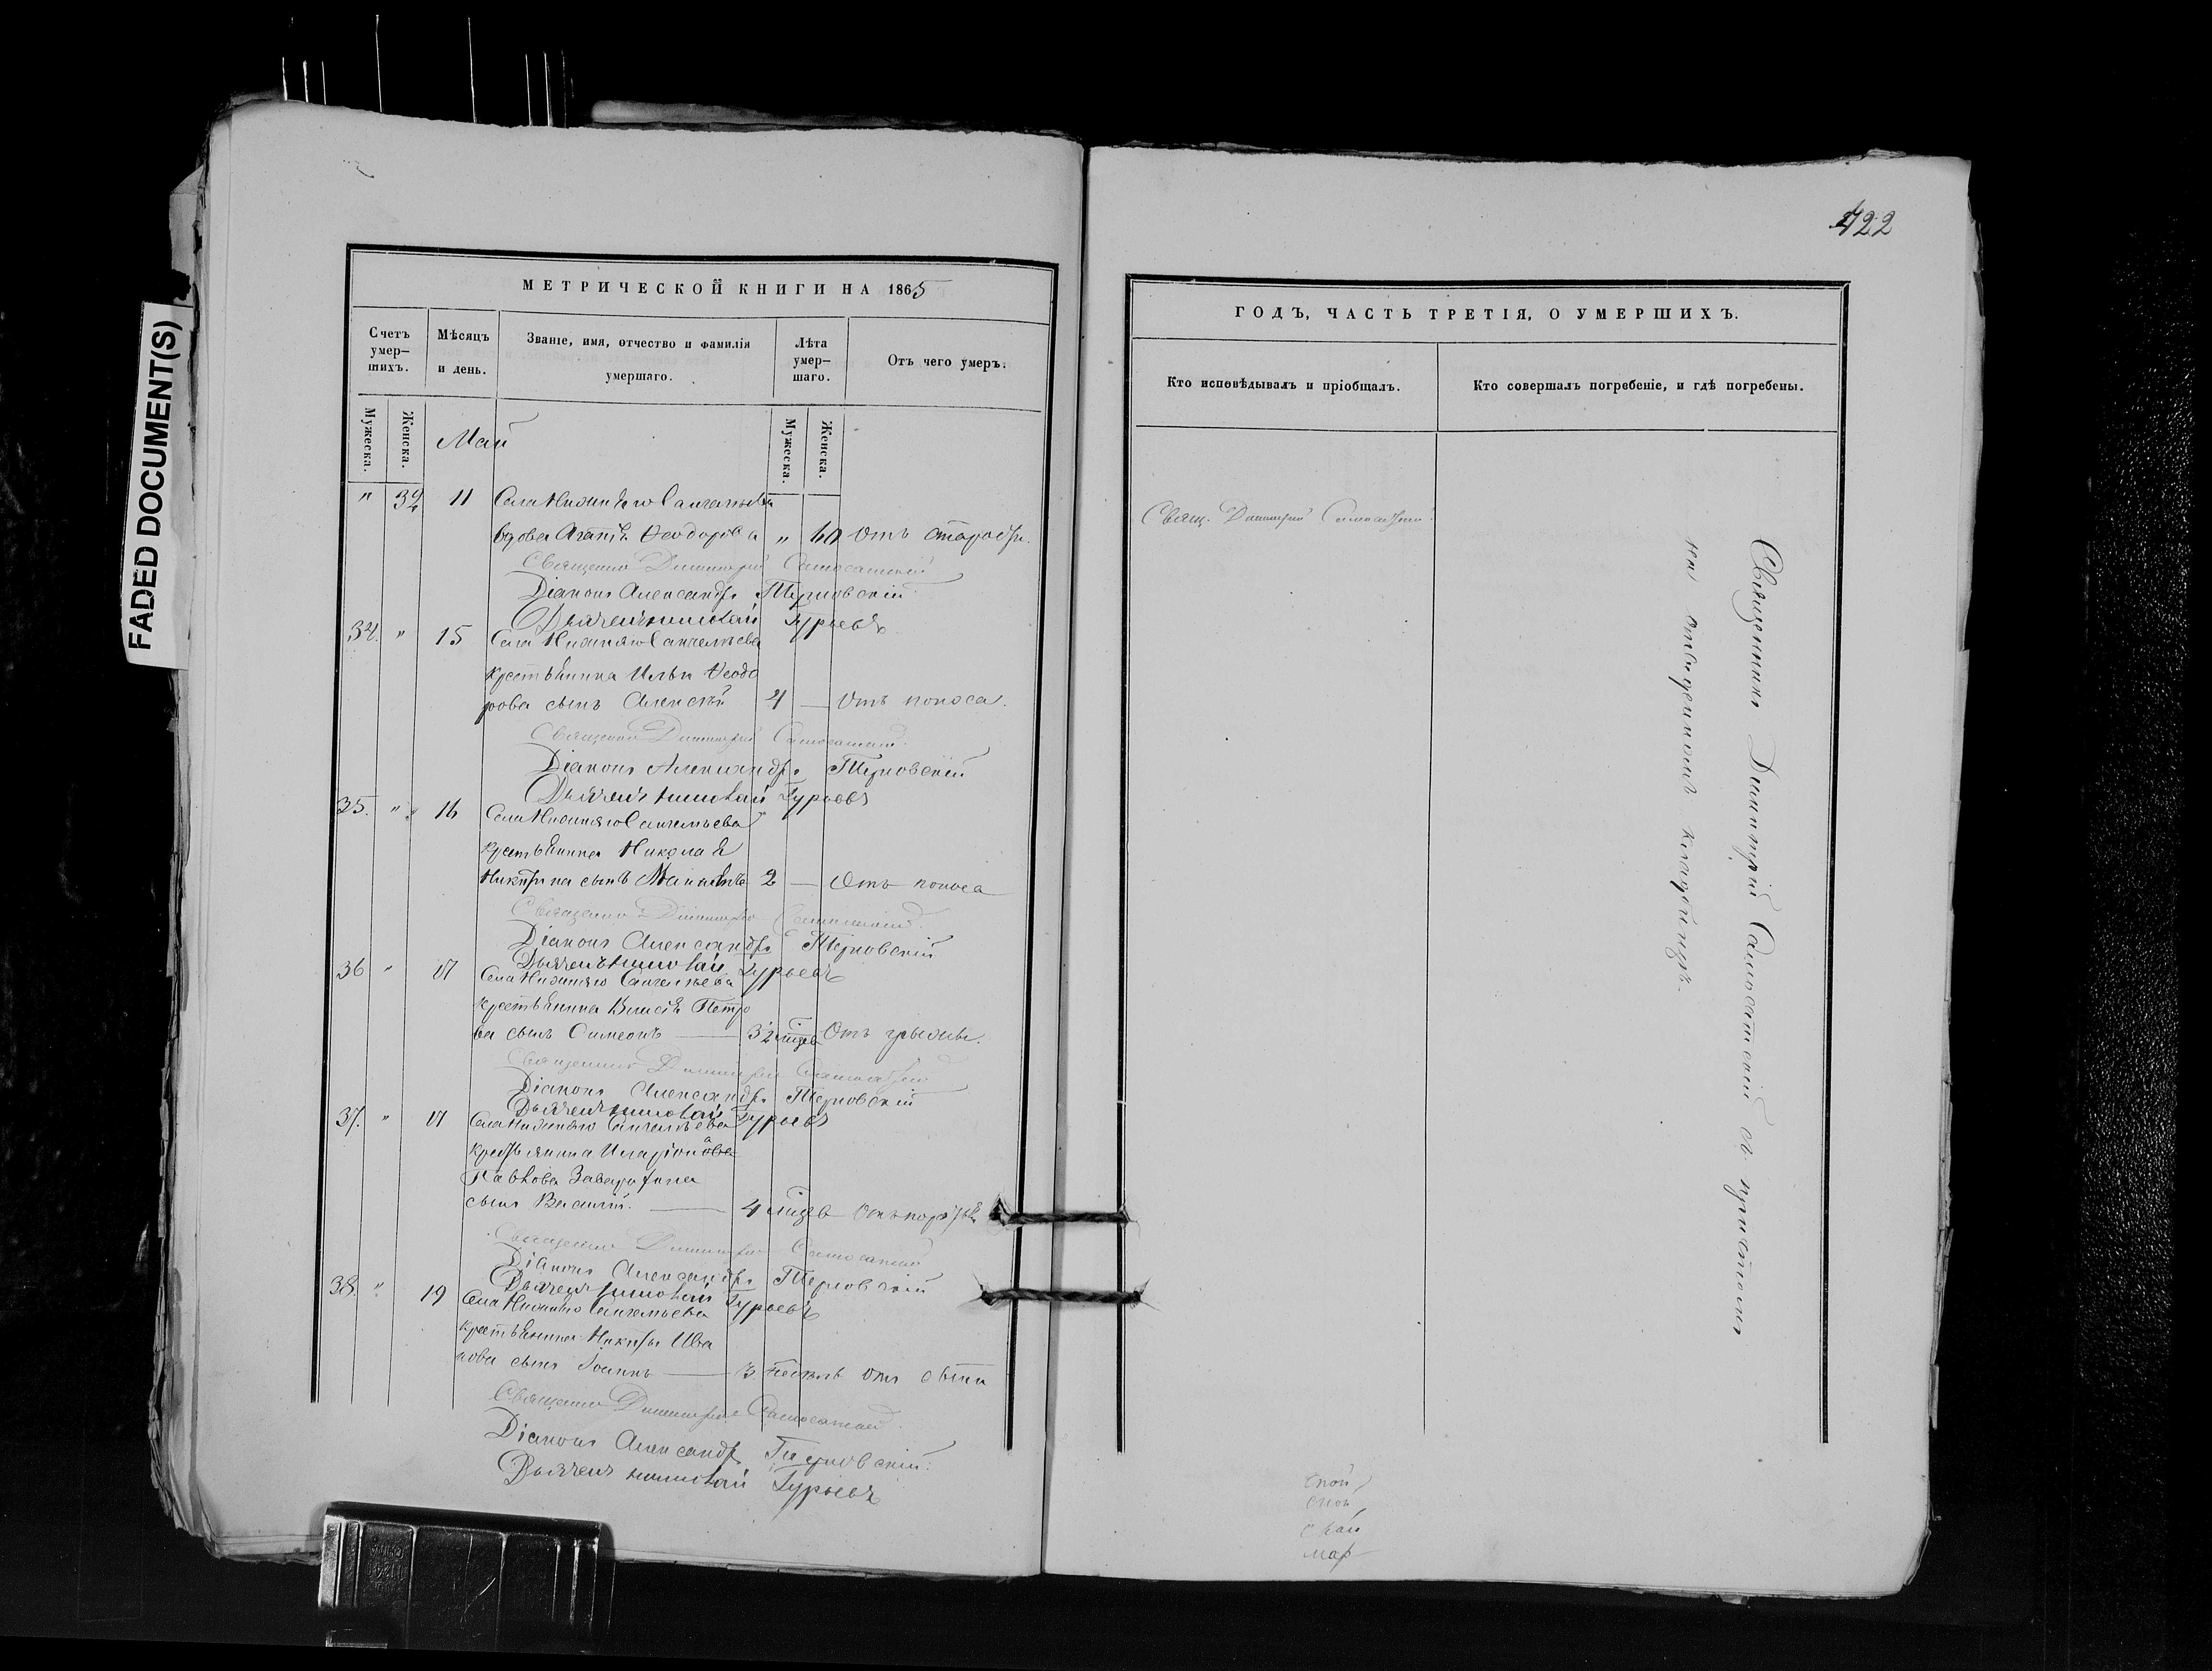 FADED DOCUMENT(S)
422
МЕТРИЧЕСКОЙ КНИГИ НА 1865
Счетъ умер–шихъ.
Мѣсяцъ и день.
Званіе, имя, отчество и фамилія умершаго.
Лѣта умер–шаго.
Отъ чего умеръ.
Мужеска.
Женска.
Май
Мужеска.
Женска.
" 32 11 Села Нижняго Сангелѣева
вдова Агапія Ѳеодорова " 60 Отъ старости.
Священникъ Димитрій Самосатскій
Діаконъ Александръ Терновскій
Дьячекъ Николай Гурьевъ
34. " 15 Села Нижняго Сангелѣева
крестьянина Ильи Ѳеодо
рова сынъ Алексѣй 4 — Отъ поноса.
Священникъ Димитрій Самосатскій
Діаконъ Александръ Терновскій
Дьячекъ Николай Гурьевъ
35. " 16 Села Нижняго Сангелѣева
крестьянина Николая
Никитина сынъ 2 — Отъ поноса
Священникъ Димитрій Самосатскій
Діаконъ Александръ Терновскій
Дьячекъ Николай Гурьевъ
36 " 17 Села Нижняго Сангелѣева
крестьянина Петро
ва сынъ Симеонъ — Отъ грыжи.
Священникъ Димитрій Самосатскій
Діаконъ Александръ Терновскій
Дьячекъ Николай Гурьевъ
37. " 17 Села Нижняго Сангелѣева
крестьянина Иларіона
сынъ Василій. — 4 мцев
Священникъ Димитрій Самосатскій
Діаконъ Александръ Терновскій
Дьячекъ Николай Гурьевъ
38. " 19 Села Нижняго Сангелѣева
крестьянина Никиты Ива
нова сынъ Іоаннъ — 3 недѣль Отъ
Священникъ Димитрій Самосатскій
Діаконъ Александръ Терновскій.
Дьячекъ Николай Гурьевъ
ГОДЪ, ЧАСТЬ ТРЕТІЯ, О УМЕРШИХЪ.
Кто исповѣдывалъ и пріобщалъ.
Кто совершалъ погребеніе, и гдѣ погребены.
Свящ. Димитрій Самосатскій
Священникъ Димитрій Самосатскій съ причтомъ
на отведенномъ кладбищѣ.